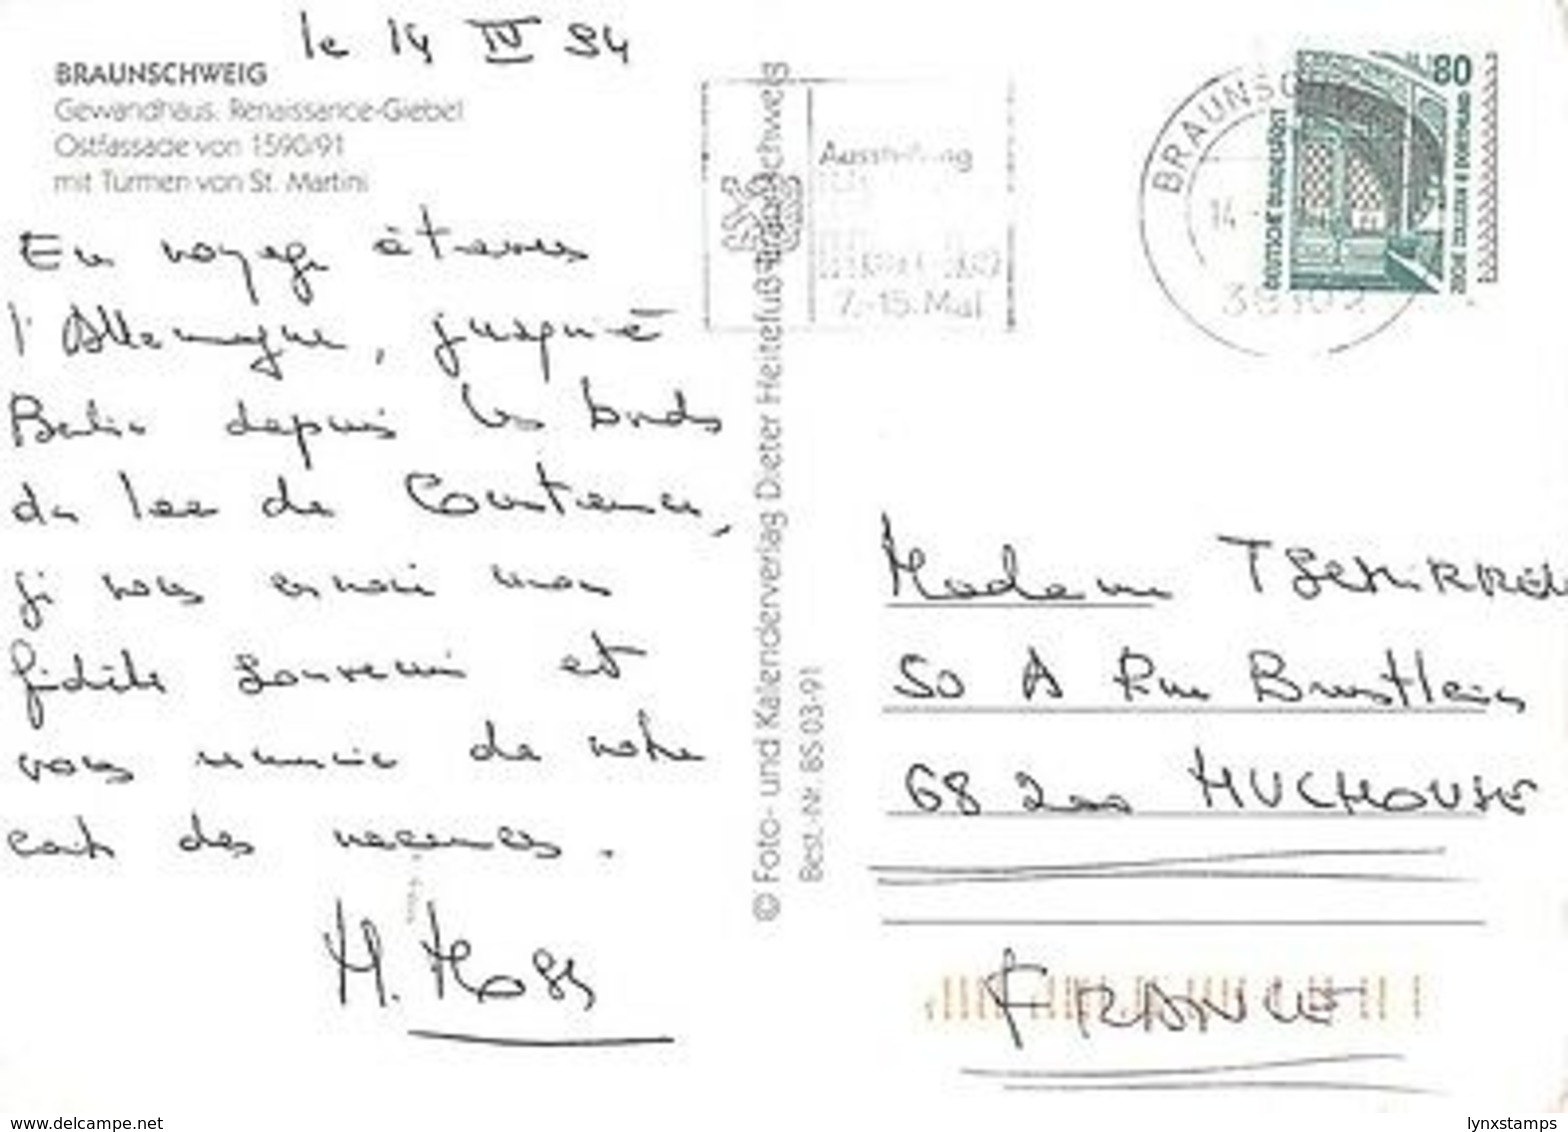 le 14 IV 94
BRAUNSCHWEIG
Gewandhaus. Renaissance-Giebel
Ostfassade von 1590/91
mit Türmen von St. Martini
En voyage à travers
l'Allemagne, jusqu'à
Berlin depuis les bords
du lac de Constance,
je vous envoie mon
fidèle souvenir et
vous remercie de votre
carte des vacances.
H. Moss
© Foto- und Kalenderverlag Dieter Heitefuß · Braunschweig
Best.-Nr. BS 03-91
Ausstellung
7.-15. Mai
BRAUNSC
14
80
DEUTSCHE BUNDESPOST
ZECHE ZOLLERN II DORTMUND
Madame
50 A Rue Brustlein
68200 MULHOUSE
FRANCE
lynxstamps